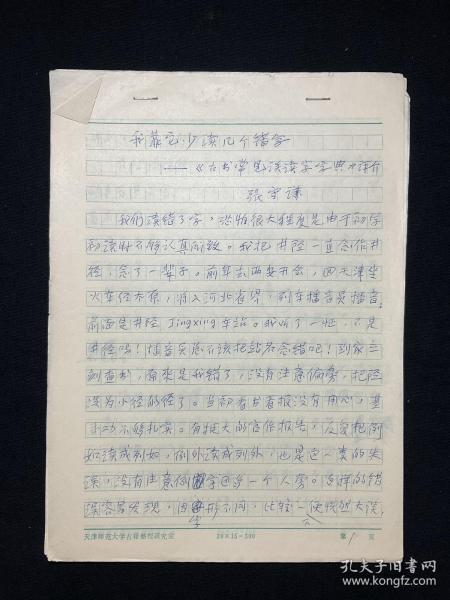 我靠它少读几个错字
——《古书常见误读字字典》评介
张守谦
我们读错了字，恐怕很大程度是由于初学
初读时不够认真所致。我把井陉一直念作井
径，念了一辈子。前年去西安开会，回天津坐
火车经太原，进入河北省界，列车播音员播音：
前面是井陉Jingxing车站。我听了一怔，不是
井径吗！播音员总不该把站名念错吧！到家立
刻查书，原来是我错了，没有注意偏旁，把陉
误为小径的径了。当初看书看报没有用心，基
本功不够扎实。有很大的官作报告，反复把例
如读成列如，例外读成列外，也是这一类的失
误，没有注意例字还多一个人旁。这样的错
误容易发现，因字形不同，比较一
天津师范大学古籍整理研究室
20×15=300
第1页
孔夫子旧书网